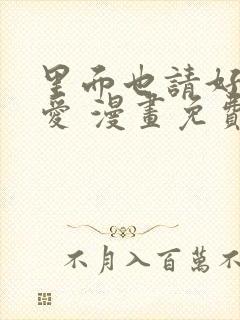 里而也請好
愛 漫畫免費
不月入百萬不